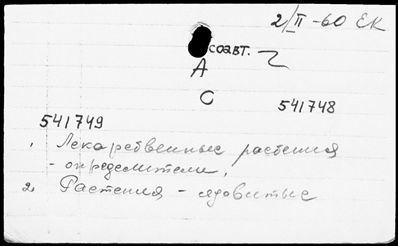 2/II-60 ЕК
СОАВТ.
А
С
541748
541749
1. Лекарственные растения
- определители.
2. Растения - ядовитые